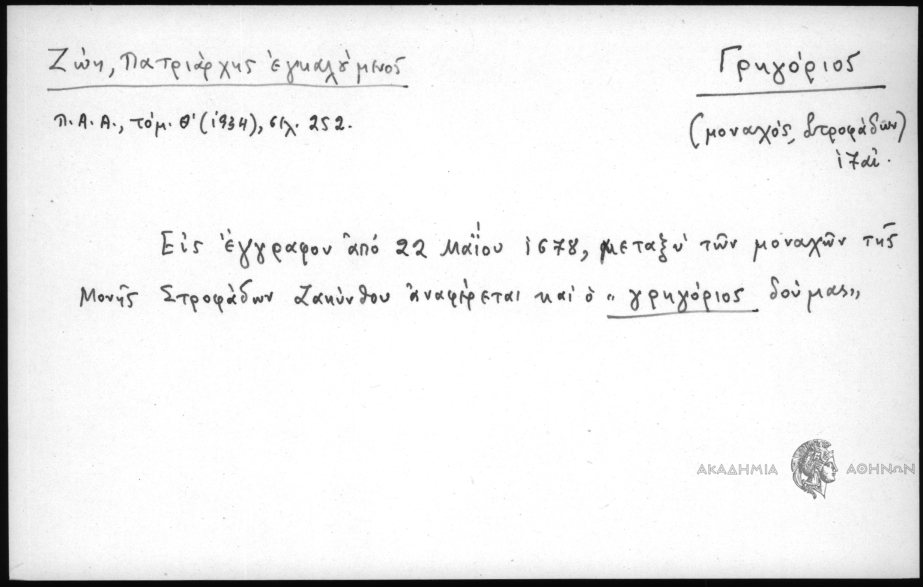 Ζώη, Πατριάρχης ἐγκαλούμενος
Π.Α.Α., τόμ. Θ' (1934), σελ. 252.
Γρηγόριος
(μοναχός, Στροφάδων)
17 αἰ.
Εἰς ἔγγραφον ἀπό 22 Μαΐου 1678, μεταξύ τῶν μοναχῶν τῆς
Μονῆς Στροφάδων Ζακύνθου ἀναφέρεται καί ὁ "γρηγόριος δούμας"
ΑΚΑΔΗΜΙΑ ΑΘΗΝΩΝ